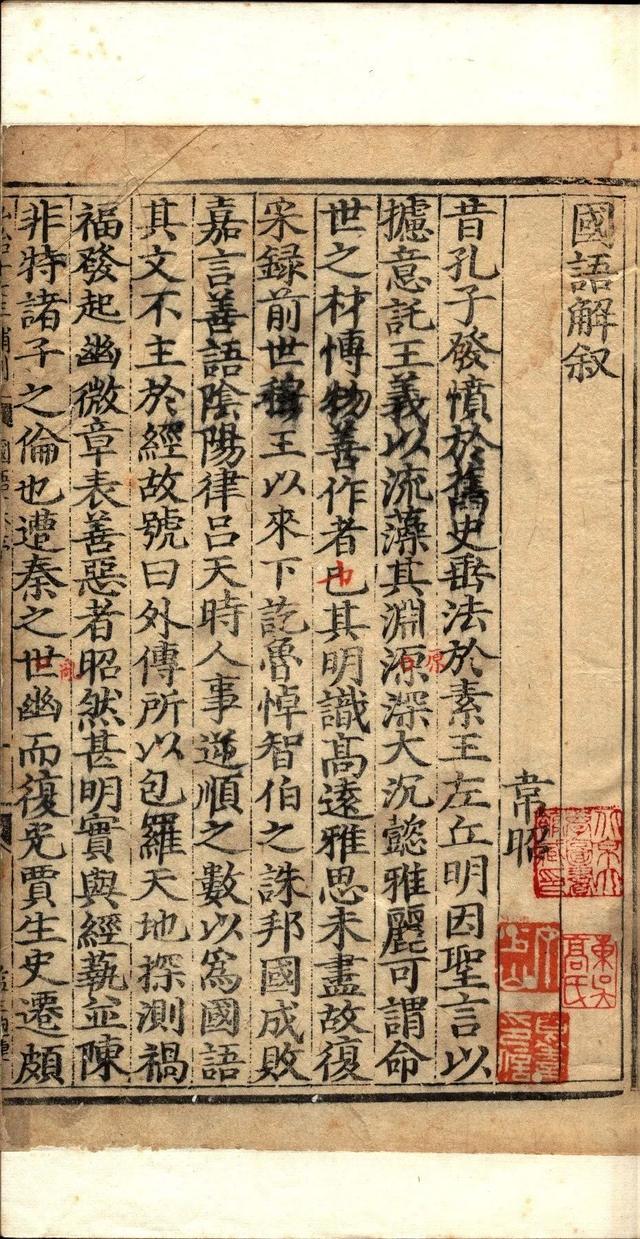 國語解叙
韋昭
昔孔子發憤於舊史垂法於素王左丘明因聖言以
攄意託王義以流藻其淵源深大沉懿雅麗可謂命
世之材博物善作者已其明識高遠雅思未盡故復
采録前世穆王以來下訖魯悼智伯之誅邦國成敗
嘉言善語陰陽律吕天時人事逆順之數以爲國語
其文不主於經故號曰外傳所以包羅天地探測禍
福發起幽微章表善惡者昭然甚明實與經藝並陳
非特諸子之倫也遭秦之世幽而復光賈生史遷頗
原
東吳
高氏